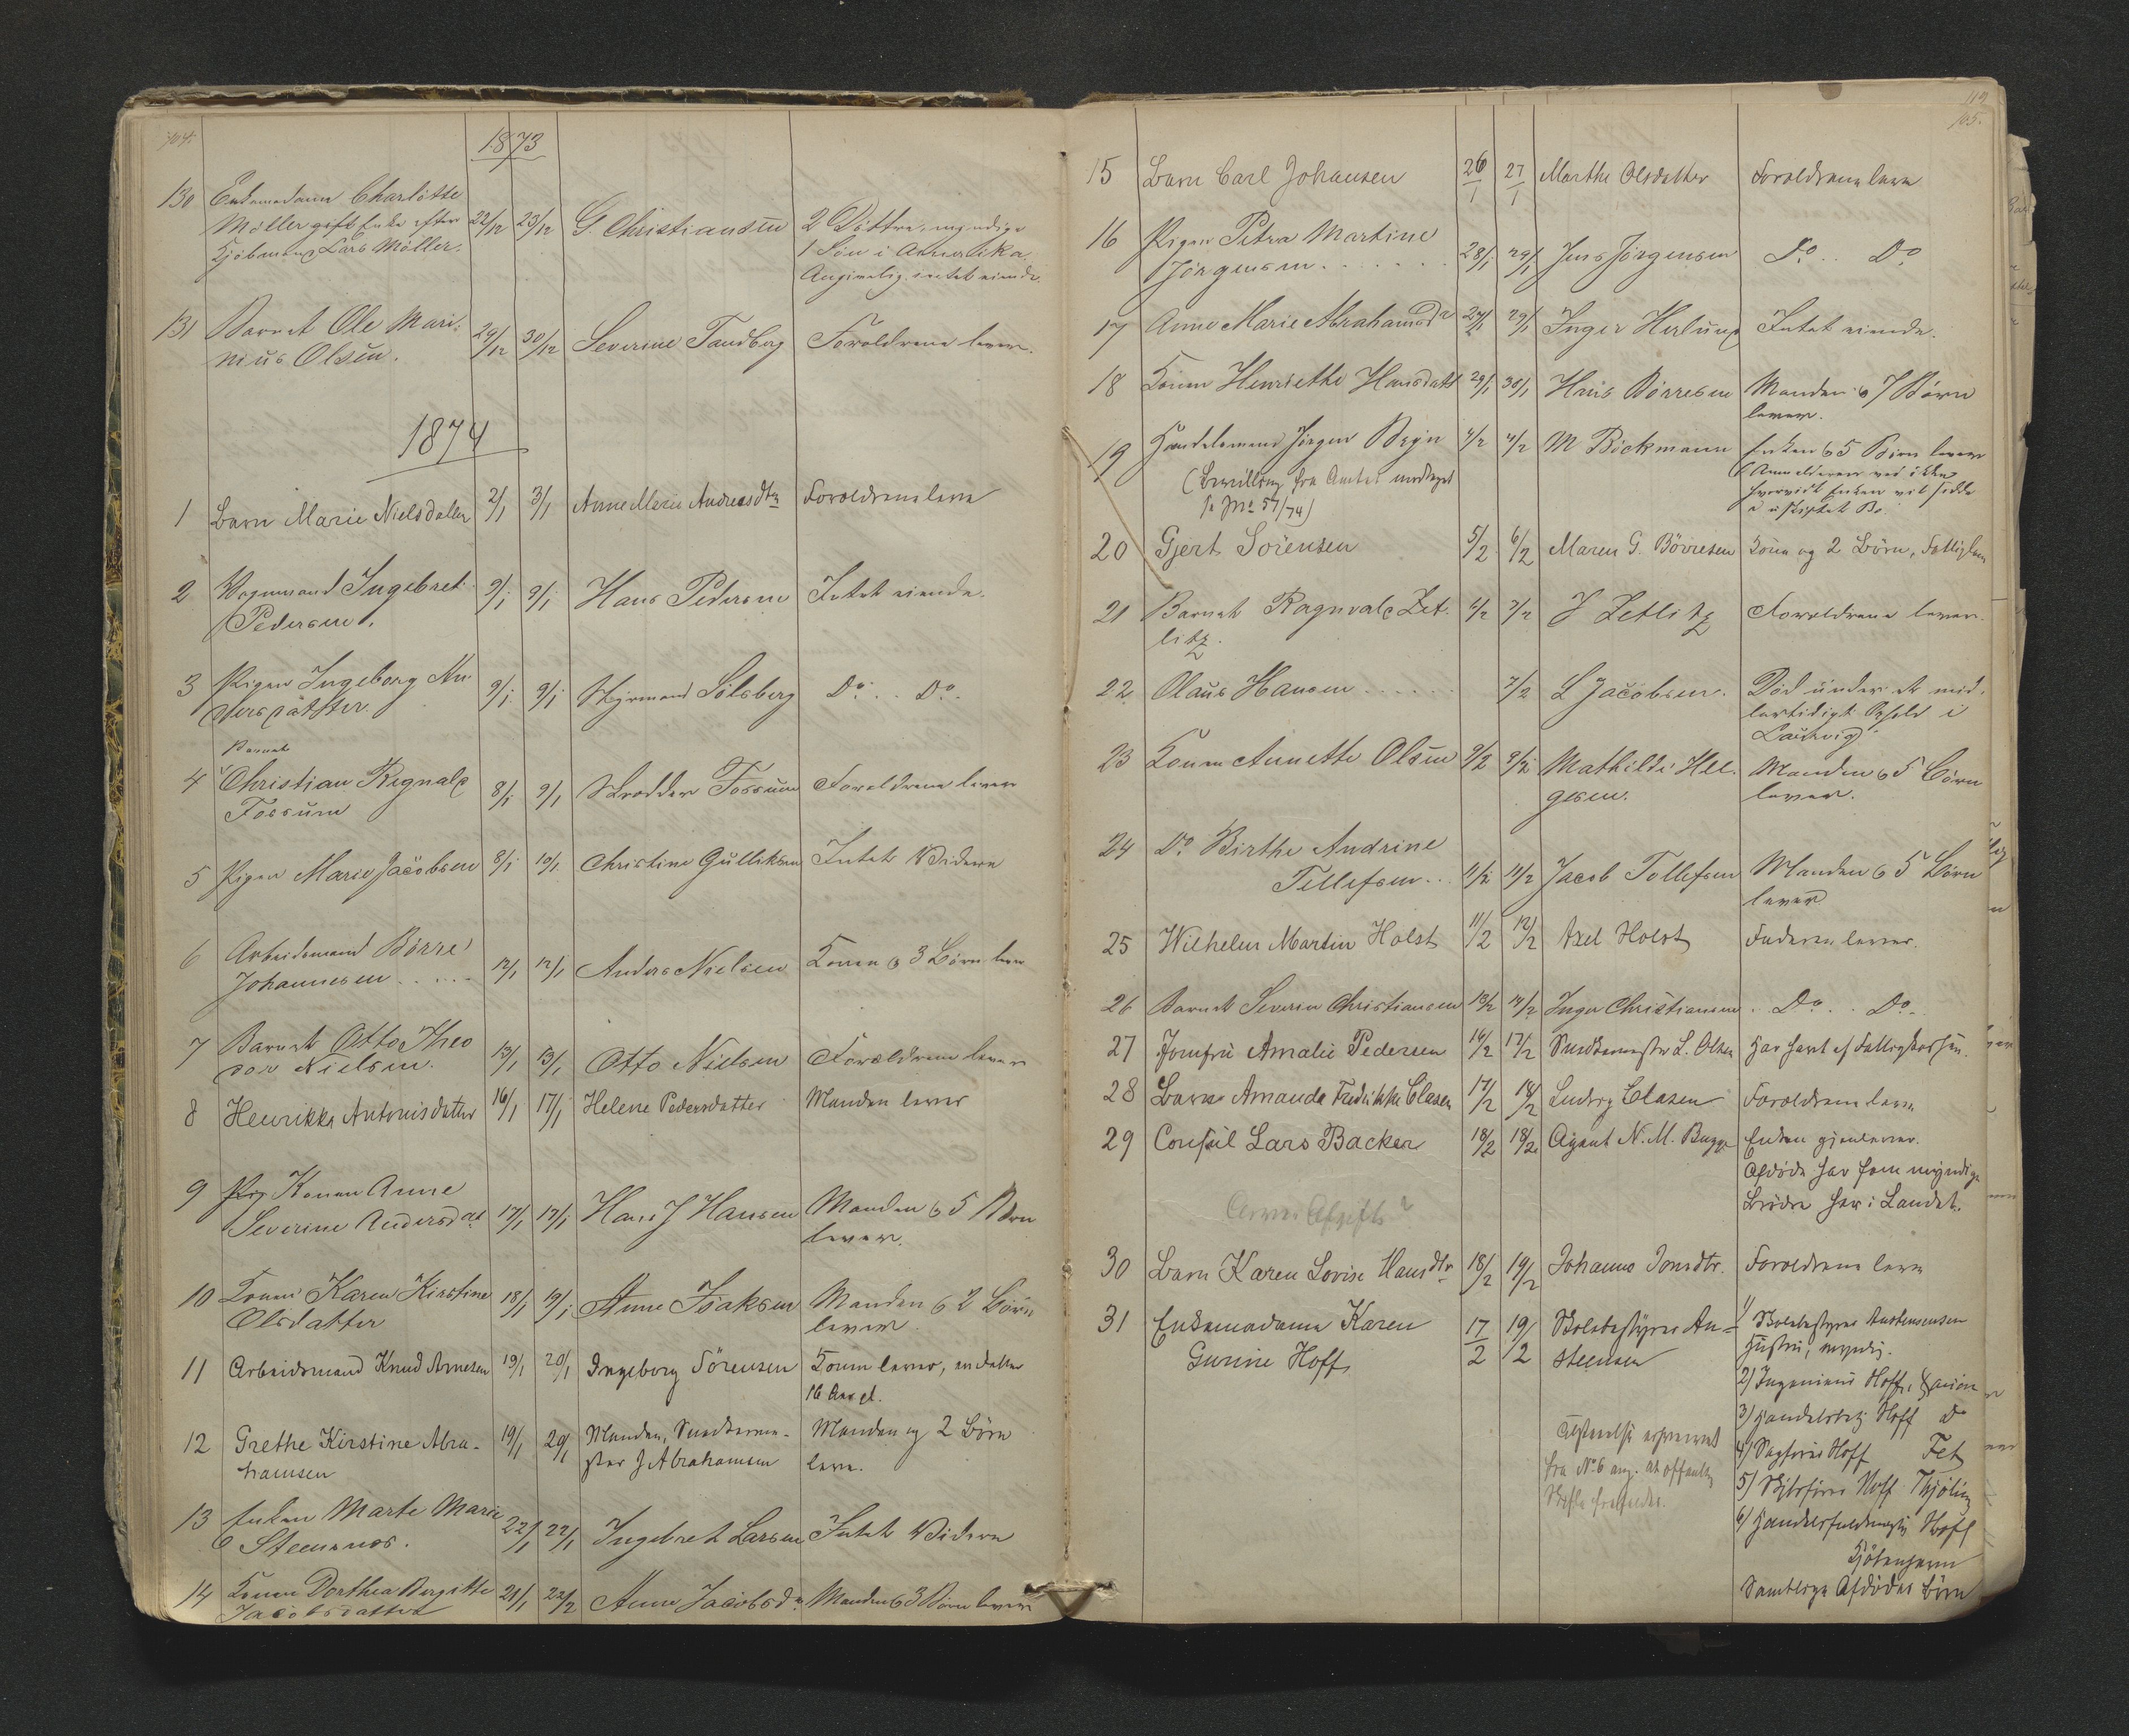 104.
1873
130 Enkemadame Charlotte
Møller gift Enke efter 22/12 23/12 G. Christiansen 2 Døttre, myndige
Kjøbmand Lars Møller. 1 Søn i Amerika.
Angivelig intet eiende.
131 Barnet Ole Mari-
nius Olsen. 29/12 30/12 Severine Tandberg Forældrene lever.
1874
1 Barn Marie Nielsdatter 2/1 3/1 Anne Marie Andreasdtr Forældrene leve
2 Vognmand Ingebret 9/1 9/1 Hans Pedersen Intet eiende.
Pedersen.
3 Pigen Ingeborg An-
dersdatter. 9/1 9/1 Styrmand Solberg Do. . Do.
Barnet
4 Christian Rignald 8/1 9/1 Skrædder Fossum Forældrene lever
Fossum
5 Pigen Marie Jacobsen 8/1 10/1 Christine Gulliksen Intet Videre
6 Arbeidsmand Børre
Johannesen . . . . 12/1 12/1 Anders Nielsen Konen & 3 Børn leve
7 Barnet Otto Theo
dor Nielsen. 13/1 13/1 Otto Nielsen Forældrene lever
8 Henrikke Antonisdatter 16/1 17/1 Helene Pedersdatter Manden lever
9 Pig Konen Anne
Severine Andersdat 17/1 17/1 Hans J Hansen Manden & 5 Børn
lever.
10 Konen Karen Kirstine 18/1 19/1 Anne Isaksen Manden & 2 Børn
Olsdatter lever.
11 Arbeidsmand Knud Arnesen 19/1 20/1 Ingeborg Sörensen Konen lever, en datter
16 Aar gl.
12 Grethe Kirstine Abra- 19/1 20/1 Manden, Snedkerme- Manden og 2 Børn
hamsen ster J Abrahamsen leve.
13 Enken Marte Marie
Steenaas. 22/1 22/1 Ingebret Larsen Intet Videre
14 Konen Dorthea Bergitte 21/1 22/2 Anne Jacobsdr Manden & 3 Børn lever
Jacobsdatter
105.
15 Barn Carl Johansen 26/1 27/1 Marthe Olsdatter Forældrene leve
16 Pigen Petra Martine
Jörgensen. . . . . . . 28/1 29/1 Jens Jörgensen Do. . Do
17 Anne Marie Abrahamsdr 27/1 29/1 Inger Herlund Intet eiende.
18 Konen Henriette Hansdatt 29/1 30/1 Hans Börresen Manden & 7 Børn
lever.
19 Handelsmand Jörgen Bryn 4/2 4/2 M Böckmann Enken & 5 Børn lever
(Bevilling fra Amtet modtaget (Anmelderen ved ikke
se No 57/74) hvorvidt Enken vil sidde
i uskiftet Bo.
20 Gjert Sörensen 5/2 6/2 Maren G. Börresen Kone og 2 Börn, Fattiglem
21 Barnet Ragnvald Zet- 6/2 7/2 J Zetlitz Forældrene lever.
litz.
22 Olaus Hansen . . . . . . 7/2 L Jacobsen. Död under et mid-
lertidigt Ophold i
Laurvig
23 Konen Annette Olsen 9/2 9/2 Mathilde Hel- Manden & 5 Börn
gesen. lever.
24 Do Birthe Andrine
Tellefsen . . 11/2 11/2 Jacob Tellefsen Manden & 5 Börn
lever
25 Wilhelm Martin Holst 11/2 12/2 Axel Holst Faderen lever.
26 Barnet Severin Christiansen 13/2 14/2 Inger Christiansen . Do . . Do.
27 Jomfru Amalie Pedersen 16/2 17/2 Snedkermester L. Olsen Har havt af Fattigkassen.
28 Barn Amanda Fredrikke Clasen 17/2 18/2 Ludvig Clasen Forældrene leve
29 Consul Lars Backer 18/2 18/2 Agent N. M. Bugge Enken gjenlever.
Afdöde har kun myndige
Brödre her i Landet.
Arveafgift?
30 Barn Karen Lovise Hansdtr 18/2 19/2 Johanne Jonsdtr. Forældrene leve
31 Enkemadame Karen 17/2 19/2 Skolebestyrer An- 1) Skolebestyrer Anstensens
Gurine Hoff stensen Hustru, myndig.
2) Ingenieur Hoff,
3) Handelsbetj Hoff do
4) Sagförer Hoff Fet
fra No 6 ang. at offentlig
5) Skibsförer Hoff Thjölling
Skifte
6) Handelsfuldmægtig Hoff
Kjöbenhavn
Samtlige Afdödes Börn